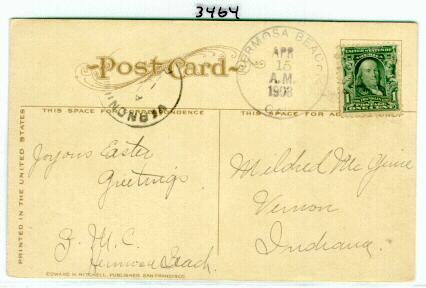 3464
PostCard
HERMOSA BEACH
APR
15
A.M.
1908
CAL.
UNITED STATES OF AMERICA
VERNON
THIS SPACE FOR CORRESPONDENCE
THIS SPACE FOR ADDRESS ONLY
PRINTED IN THE UNITED STATES
Joyous Easter
Greetings.
J. M. C.
Hermosa Beach
Mildred McGinne
Vernon
Indiana.
EDWARD H. MITCHELL, PUBLISHER, SAN FRANCISCO